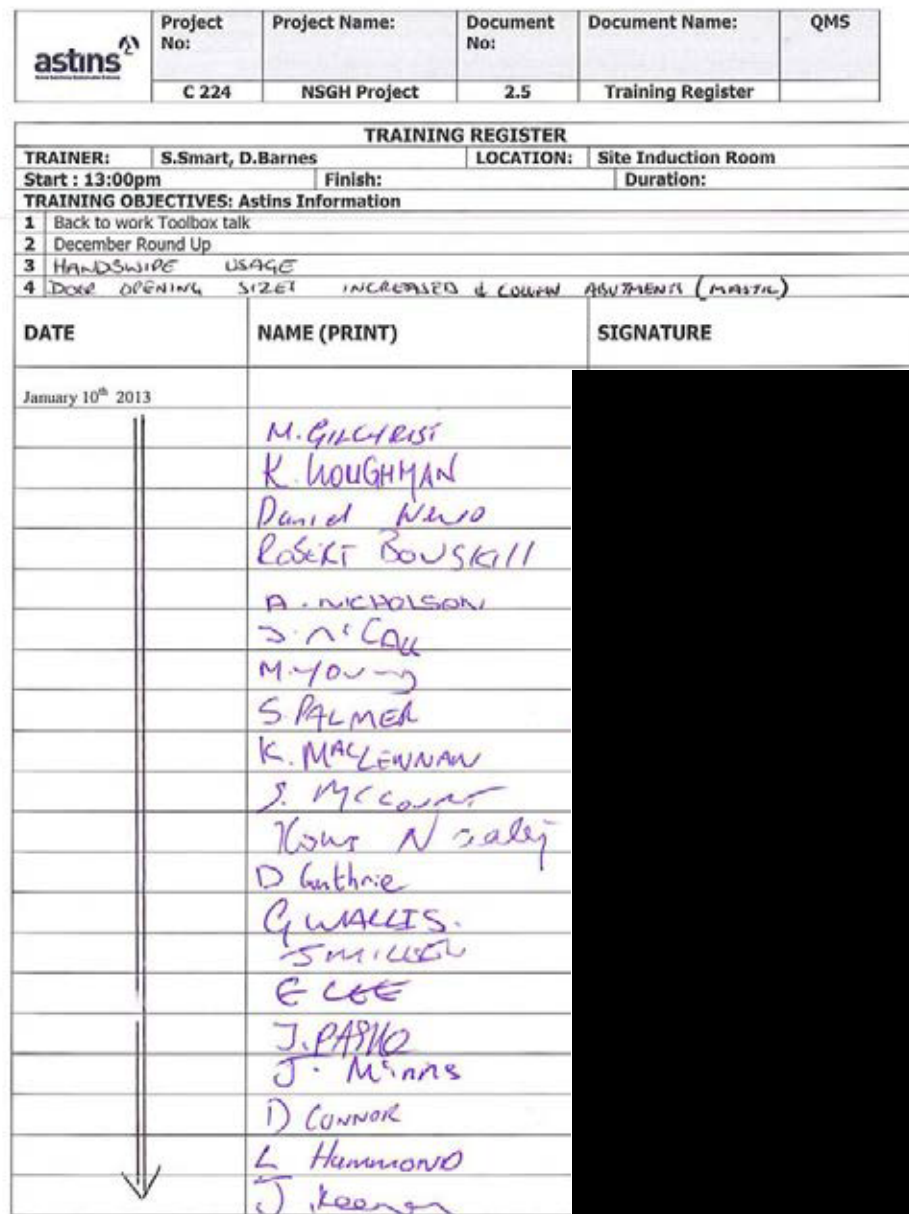 astins
Project No:
Project Name:
Document No:
Document Name:
QMS
C 224
NSGH Project
2.5
Training Register
TRAINING REGISTER
TRAINER: S.Smart, D.Barnes LOCATION: Site Induction Room
Start : 13:00pm Finish: Duration:
TRAINING OBJECTIVES: Astins Information
1 Back to work Toolbox talk
2 December Round Up
3 HANDSWIPE USAGE
4 DOOR OPENING SIZES INCREASED & COLUMN ABUTMENTS (MASTIC)
DATE NAME (PRINT) SIGNATURE
January 10th 2013
M. GILCHRIST
K. LOUGHMAN
Daniel
ROBERT BOWSKILL
A. NICHOLSON
J. McCALL
M. YOUNG
S. PALMER
K. MACLENNAN
J. McCOURT
D Guthrie
G WALLIS.
J MILLER
E LEE
J.
J. McInnes
D CONNOR
L HAMMOND
J Keenan